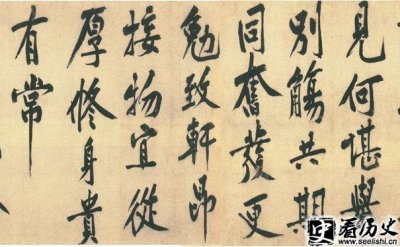 見何堪與
別觴共期
同奮發更
勉致軒昂
接物宜從
厚修身貴
有常
看历史
www.seelishi.cn